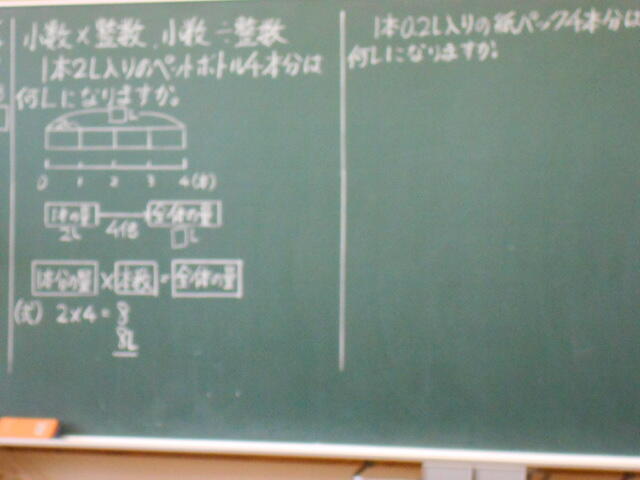 小数×整数、小数÷整数
1本2L入りのペットボトル4本分は
何Lになりますか。
□L
2L
0 1 2 3 4(本)
1本の量 全体の量
2L 4倍 □L
1本分の量×本数=全体の量
(式) 2×4=8
8L
1本0.2L入りの紙パック4本分は
何Lになりますか。